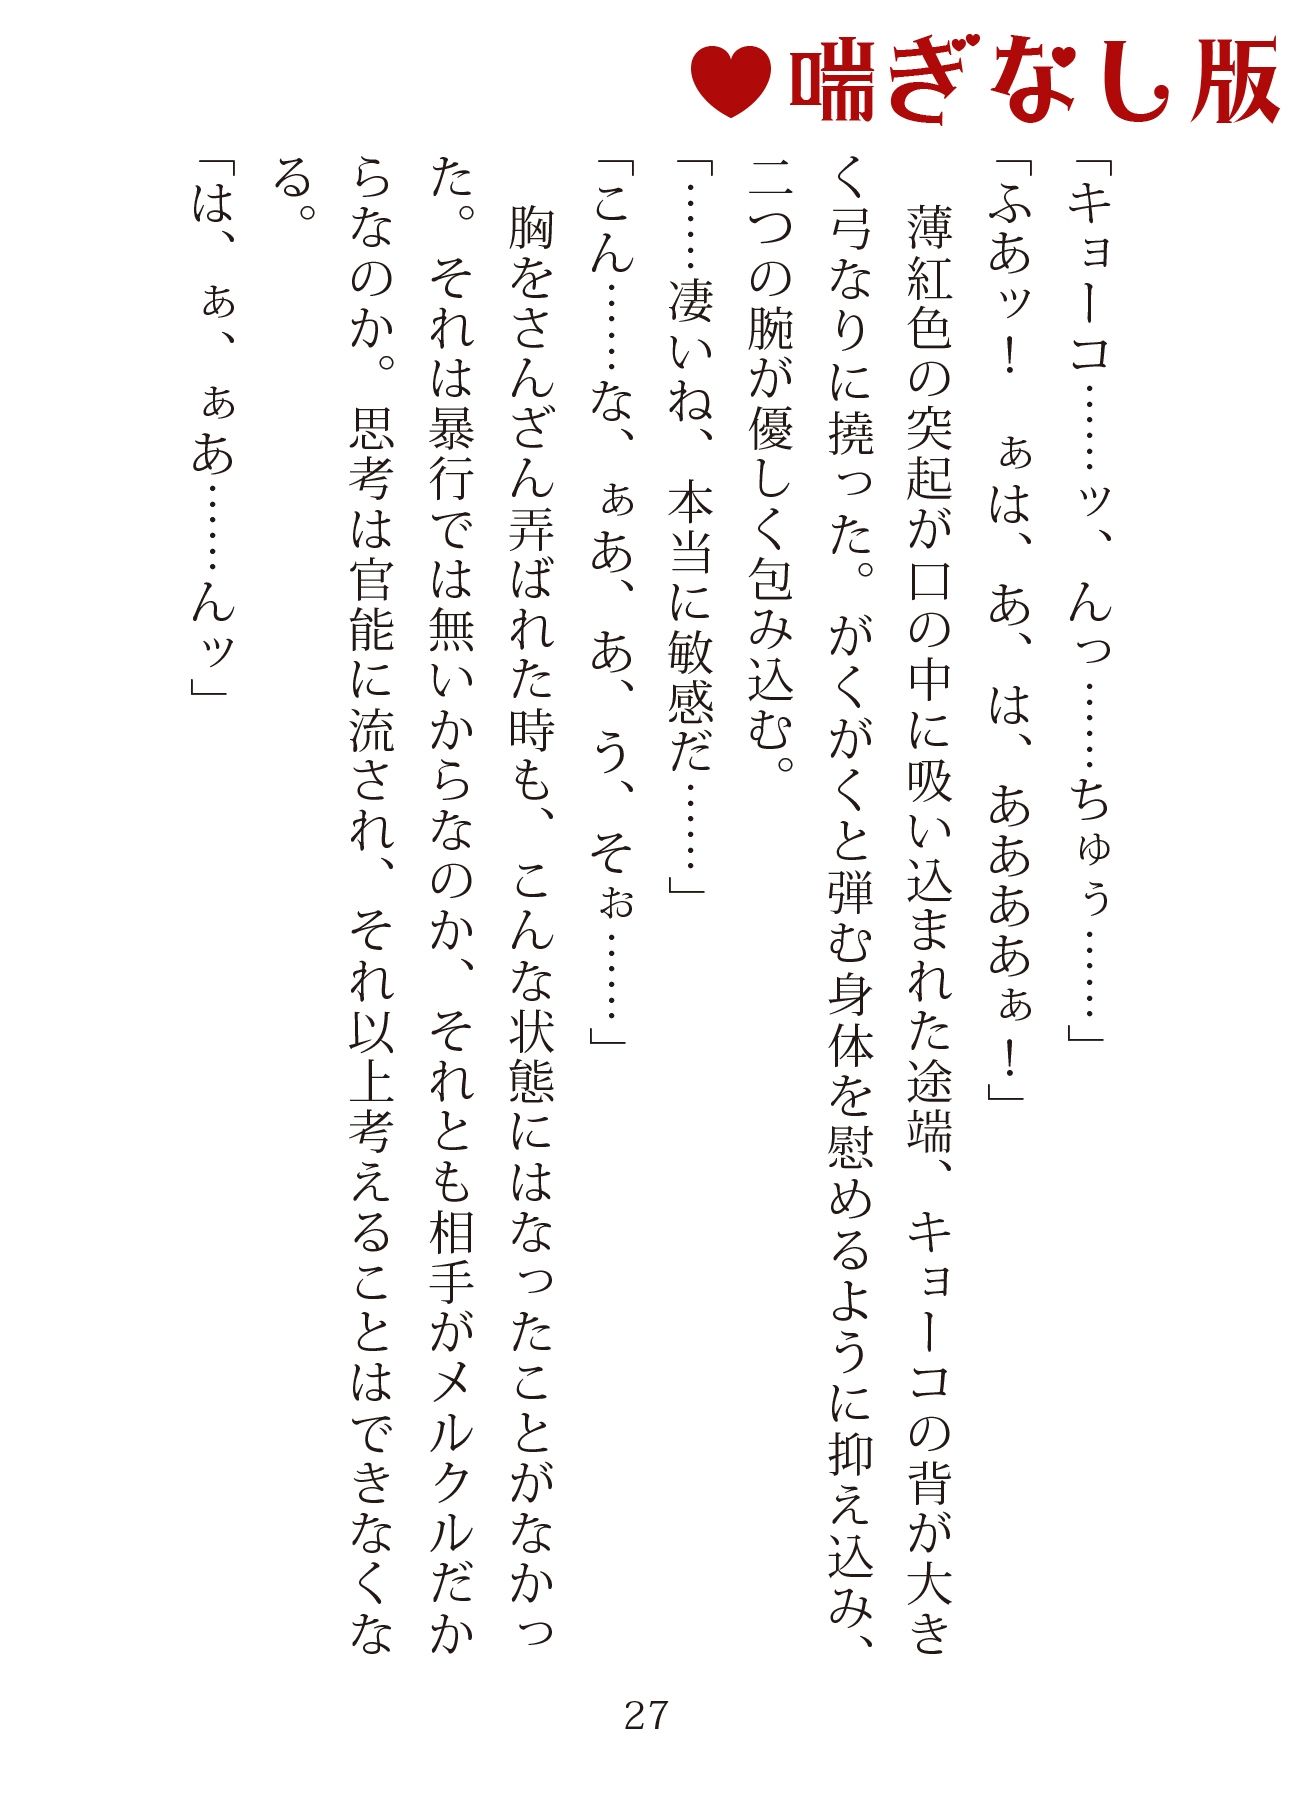 ♥喘ぎなし版
「キョーコ……ッ、んっ……ちゅぅ……」
「ふあッ！　ぁは、あ、は、ああああぁ！」
　薄紅色の突起が口の中に吸い込まれた途端、キョーコの背が大き
く弓なりに撓った。がくがくと弾む身体を慰めるように抑え込み、
二つの腕が優しく包み込む。
「……凄いね、本当に敏感だ……」
「こん……な、ぁあ、あ、う、そぉ……」
　胸をさんざん弄ばれた時も、こんな状態にはなったことがなかっ
た。それは暴行では無いからなのか、それとも相手がメルクルだか
らなのか。思考は官能に流され、それ以上考えることはできなくな
る。
「は、ぁ、ぁあ……んッ」
27